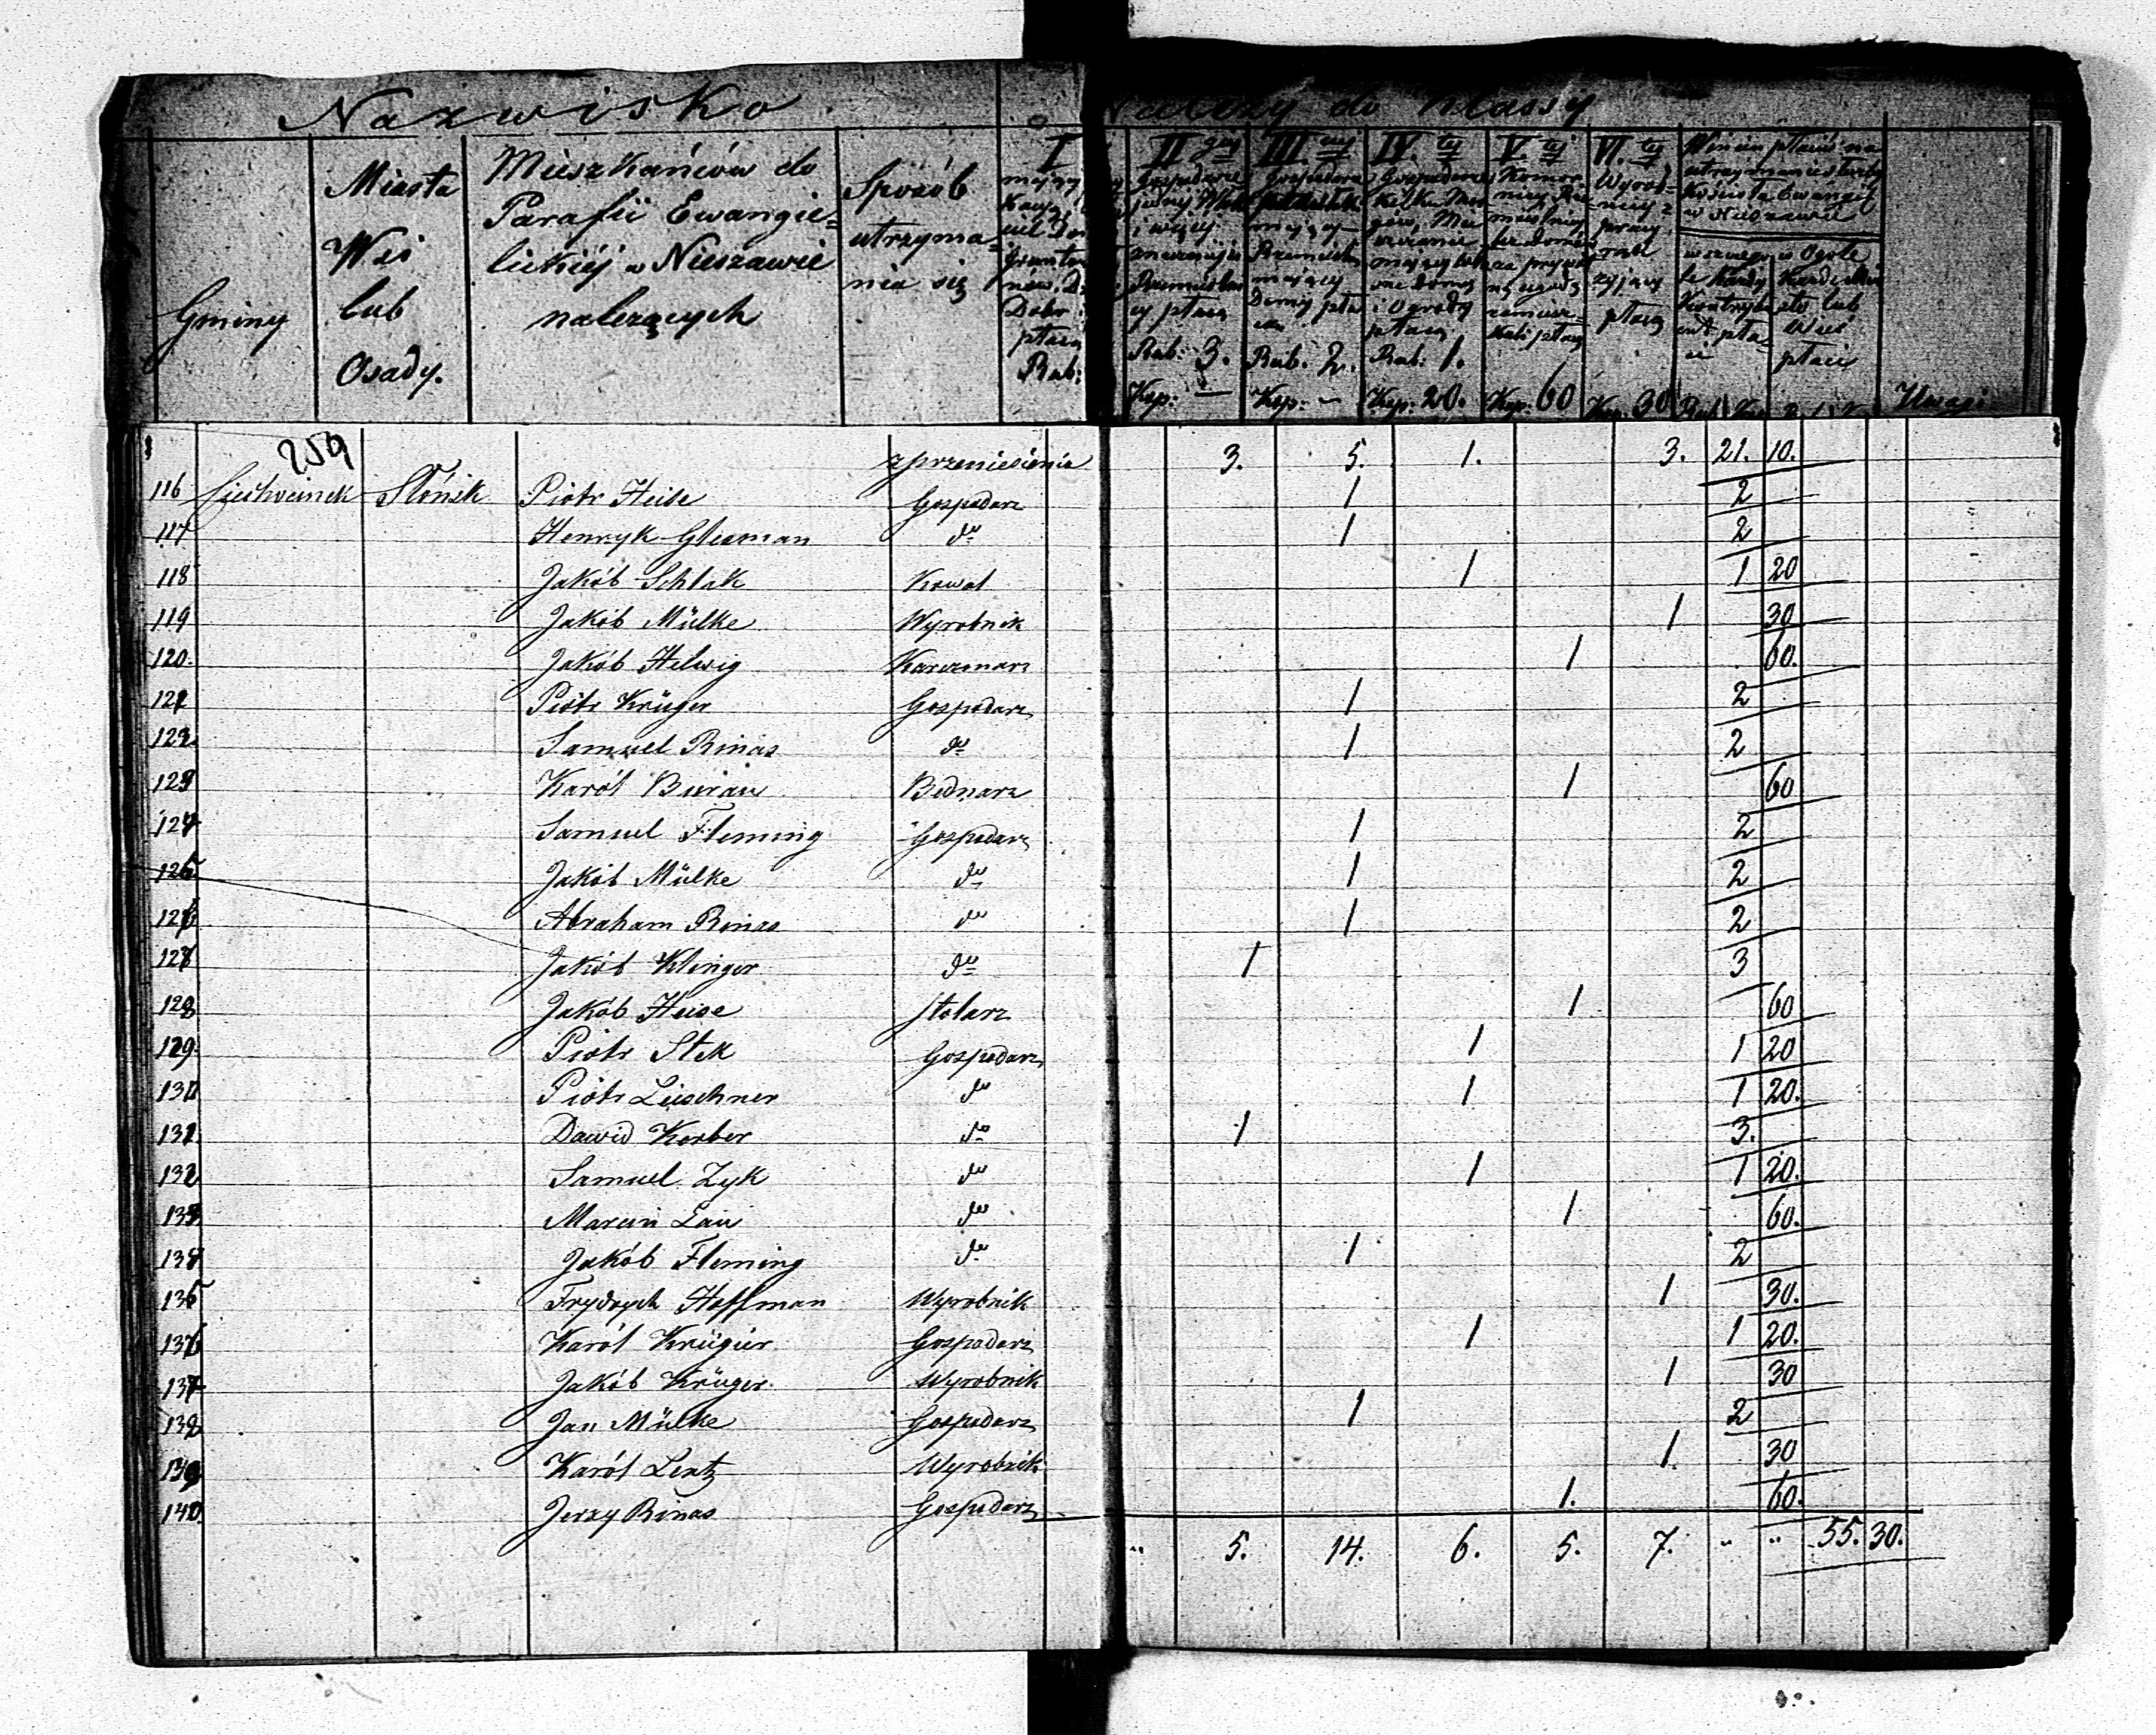 Nazwisko należy do Klassy
Gminy
Miasta
Wsi
lub
Osady.
Mieszkańców do
Parafii Ewangie=
lickiéj w Nieszawie
należących
Sposób
utrzyma=
nia się
I
Dobr
płacą
Rub:
II
Gospodarze
i więcéj
cy płacą
Rub: 3.
Kop: —
III
mający
Domy
Rub. 2.
Kop: —
IV
i Ogrody
płacą
Rub: 1.
Kop: 20.
V
Kop: 60
VI
Wyrob=
nicy z
pracy
rąk
żyjący
płacą
Kop. 30
Winien płacić na
utrzymanie
Kościoła Ewangiel
w Nieszawie
w Ogóle
lub
Wieś
płaci
Uwagi
259
z przeniesienia 3. 5. 1. 3. 21. 10.
116 Ciechocinek Słońsk Piotr Heise Gospodarz 1 2
117 Henryk Glesman do 1 2
118 Jakób Schlak Kowal 1 1 20
119 Jakób Mülke Wyrobnik 1 30
120. Jakób Helwig Karczmarz 1 60.
121 Piotr Krüger Gospodarz 1 2
122. Samuel Rinas do 1 2
123 Karól Burau Bednarz 1 60
124 Samuel Fleming Gospodarz 1 2
125 Jakób Mülke do 1 2
126 Abraham Rinas do 1 2
127 Jakób Klinger do 1 3
128 Jakób Heise Stolarz 1 60
129. Piotr Stek Gospodarz 1 1 20
130 Piotr Lüschner do 1 1 20.
131. Dawid Kerber do 1 3.
132 Samuel Zyk do 1 1 20.
133 Marcin Lau do 1 60.
134 Jakób Fleming do 1 2
135 Frydrych Hoffman Wyrobnik 1 30.
136 Karól Krügier Gospodarz 1 1 20.
137 Jakób Krüger Wyrobnik 1 30
138 Jan Mülke Gospodarz 1 2
139 Karól Lentz Wyrobnik 1. 30
140. Jerzy Rinas Gospodarz 1. 60.
" 5. 14. 6. 5. 7. " " 55. 30.